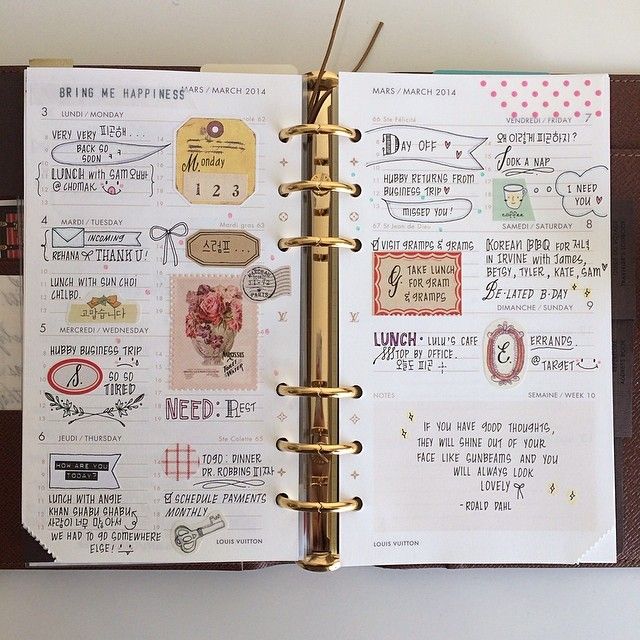 BRING ME HAPPINESS
MARS / MARCH 2014
3 LUNDI / MONDAY
VERY VERY 피곤해 . . . .
BACK SO
SOON
LUNCH WITH SAM
@ CHOMAK.
Monday
1 2 3
4 MARDI / TUESDAY
Mardi gras 63
INCOMING
REHANA THANK U!
스럼프 . . .
LUNCH WITH SUN CHOI
CHILBO.
고맙습니다
PARIS
5 MERCREDI / WEDNESDAY
HUBBY BUSINESS TRIP
S. SO SO
TIRED
NEED: REST
6 JEUDI / THURSDAY
Ste Colette 65
HOW ARE YOU
TODAY?
TOGO: DINNER
DR. ROBBINS 피자
LUNCH WITH ANGIE
KHAN SHABU SHABU
사람이 너무 많아서
WE HAD TO GO SOMEWHERE
ELSE!
SCHEDULE PAYMENTS
MONTHLY
LOUIS VUITTON
MARS / MARCH 2014
66 Ste Félicité
VENDREDI / FRIDAY 7
DAY OFF
왜 이렇게 피곤하지?
TOOK A NAP
HUBBY RETURNS FROM
BUSINESS TRIP
MISSED YOU!
coffee
I NEED
YOU
67 St Jean de Dieu
SAMEDI / SATURDAY 8
VISIT GRAMPS & GRAMS
G. TAKE LUNCH
FOR GRAM
& GRAMPS
KOREAN BBQ FOR 저녁
IN IRVINE WITH JAMES,
BETSY, TYLER, KATE, SAM
BE-LATED B-DAY
DIMANCHE / SUNDAY 9
LUNCH: LULU'S CAFE
STOP BY OFFICE.
오늘도 피곤
E. ERRANDS.
@ TARGET
NOTES
SEMAINE / WEEK 10
IF YOU HAVE GOOD THOUGHTS,
THEY WILL SHINE OUT OF YOUR
FACE LIKE SUNBEAMS AND YOU
WILL ALWAYS LOOK
LOVELY
- ROALD DAHL
LOUIS VUITTON